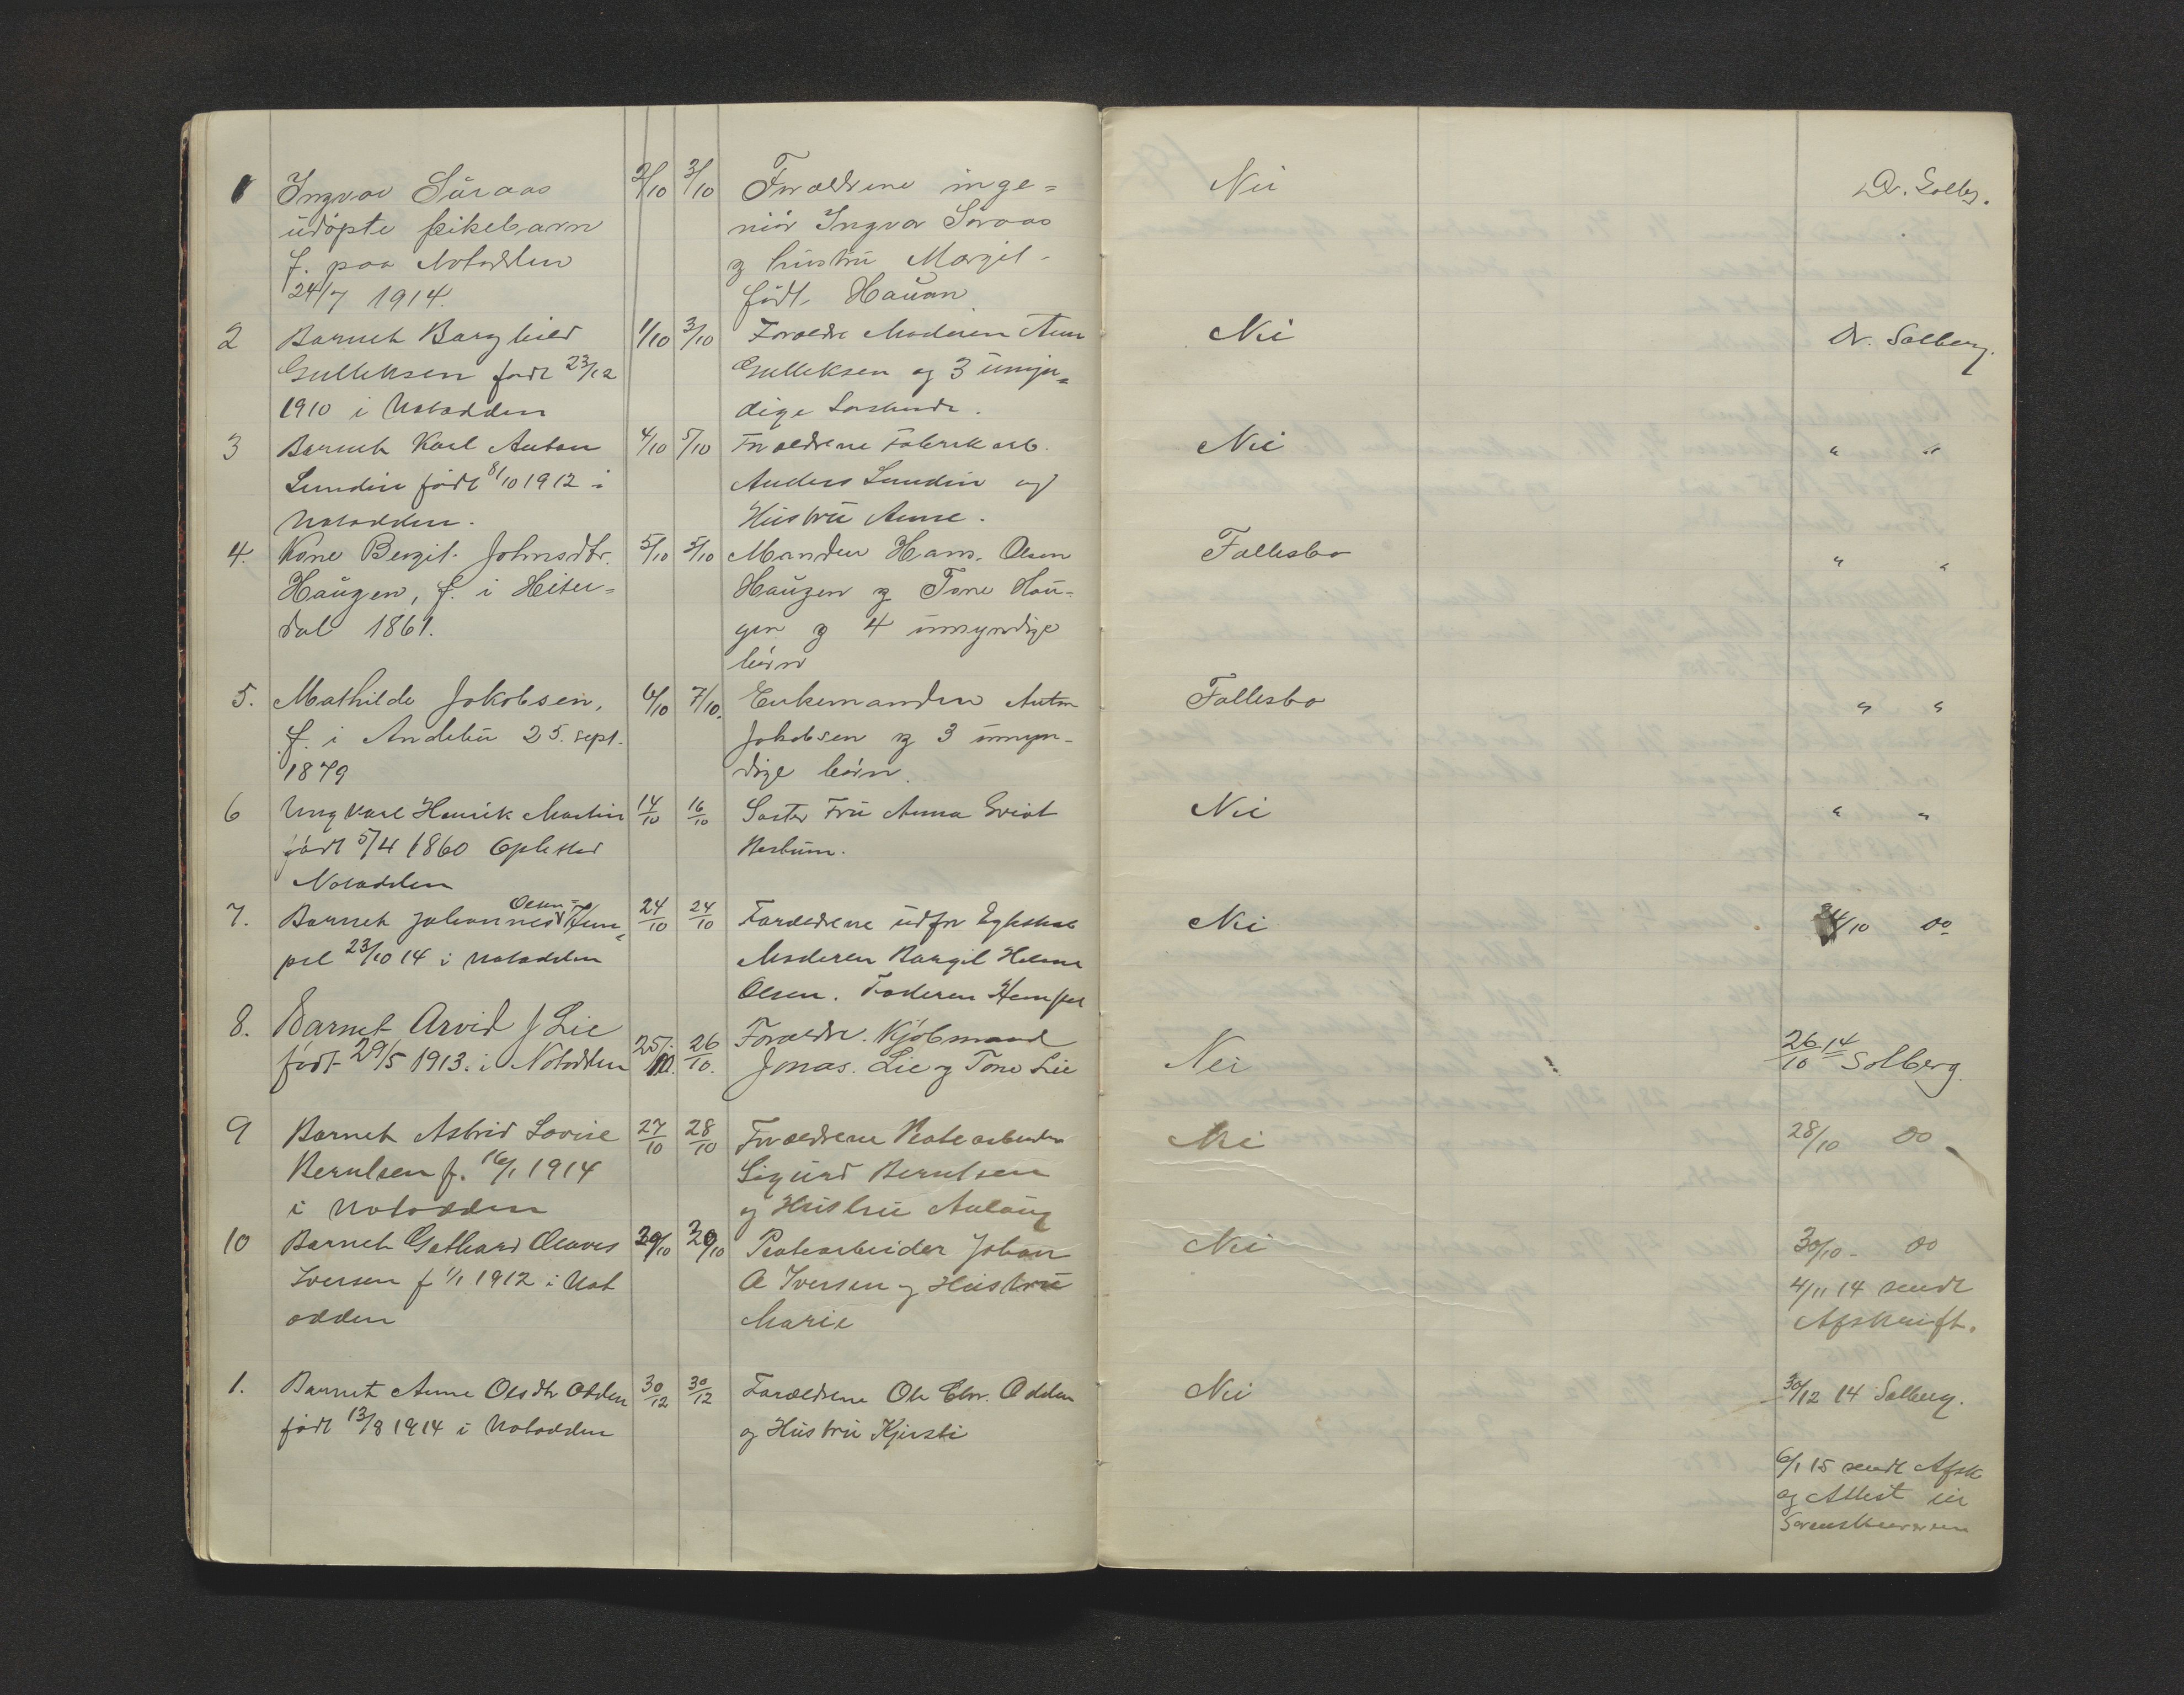 1 Ingvar Süraas 2/10 3/10 Forældrene inge= Nei Dr. Solbg.
udöpte pikebarn niör Ingvar Soraas
f. paa Notodden og hustru Margit
24/7 1914. födt Hauan
2 Barnet Borghild 1/10 3/10 Foreldre Moderen Anne Nei Dr. Solberg.
Gulleksen født 23/12 Gulleksen og 3 umyn=
1910 i Notodden dige Søskende.
3 Barnet Karl Anton 4/10 5/10 Forældrene Fabrikarb. Nei " "
Lundin født 8/10 1912 i Anders Lundin og
Notodden. Hustru Anne.
4. Kone Bergit Johnsdtr. 5/10 5/10 Manden Hans Olsen Fællesbo " "
Haugen, f. i Hiter= Haugen og Tone Hau-
dal 1861. gen og 4 umyndige
börn
5. Mathilde Jakobsen, 6/10 7/10. Enkemanden Anton Fællesbo " "
f. i Andebu 25. sept. Jakobsen og 3 umyn-
1879 dige börn.
6 Ungkarl Henrik Martin 14/10 16/10 Søster Fru Anna Nei " "
født 5/4 1860 Oplisted
Notodden
7. Barnet Johannes Olsen Hem= 24/10 24/10 Foreldrene udfor Egteskab Nei 24/10 Do
pel 23/10 14 i Notodden Moderen Helene
Olsen. Faderen Hempel
8. Barnet Arvid J Lie 25/10. 26/10. Foreldre. Kjöbmand Nei 26/10 14 Solberg
født 29/5 1913. i Notodden Jonas. Lie og Tone Lie
9 Barnet Astrid Lovise 27/10 28/10 Forældrene Nei 28/10 Do
Berntsen f. 16/1 1914 Sigurd Berntsen
i Notodden og Hustru Aslaug
10 Barnet Gothard Olaves 29/10 30/10 Johan Nei 30/10 - Do
Iversen f 1/1 1912 i Not A Iversen og Hustru 4/11 14 sendt
odden Marie Afskrift.
1. Barnet Anne Olsdtr Odden 30/12 30/12 Foreldrene Ole Chr. Odden Nei 30/12 14 Solberg.
født 13/8 1914 i Notodden og Hustru Kjersti
6/1 15 sendt Afsk
og Attest til
Sorenskriveren